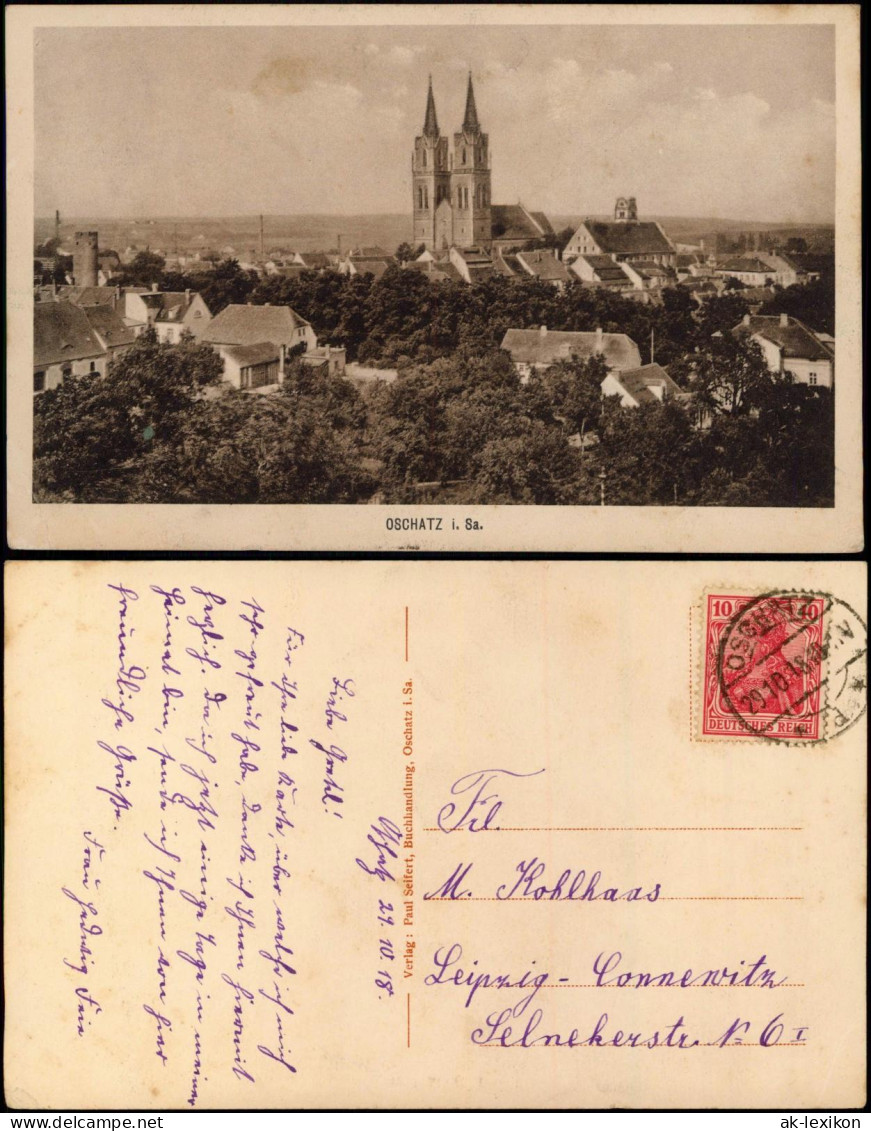 OSCHATZ i. Sa.
10 10
DEUTSCHES REICH
OSCHATZ
29.10.18
Verlag: Paul Seifert, Buchhandlung, Oschatz i. Sa.
Frl.
M. Kohlhaas
Leipzig-Connewitz
Selnekerstr. № 6 I
Oschatz 29.10.18.
Liebe Gretl!
Für Ihre liebe Karte, über welche ich mich
sehr gefreut habe, danke ich Ihnen hiermit
herzlich. Da ich jetzt einige Tage in meiner
Heimat bin, sende ich Ihnen von hier
freundliche Grüße.
Frau Hedwig
ak-lexikon